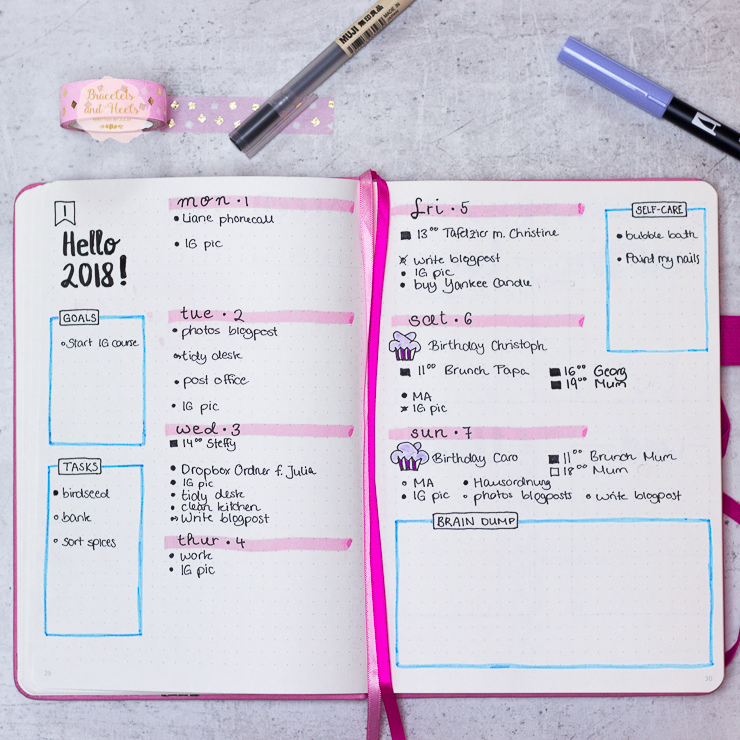 MUJI 無印良品
MADE IN
Bracelets
and Heels
1
Hello
2018!
GOALS
Start IG course
TASKS
birdseed
bank
sort spices
29
mon · 1
Liane phonecall
IG pic
tue · 2
photos blogpost
tidy desk
post office
IG pic
wed · 3
14⁰⁰ Steffy
Dropbox Ordner f. Julia
IG pic
tidy desk
clean kitchen
write blogpost
thur · 4
work
IG pic
fri · 5
13⁰⁰ Tafelzier m. Christine
write blogpost
IG pic
buy Yankee Candle
SELF-CARE
bubble bath
Paint my nails
sat · 6
Birthday Christoph
11⁰⁰ Brunch Papa
16⁰⁰ Georg
19⁰⁰ Mum
MA
IG pic
sun · 7
Birthday Caro
11⁰⁰ Brunch Mum
18⁰⁰ Mum
MA
Hausordnung
IG pic
photos blogposts
write blogpost
BRAIN DUMP
30